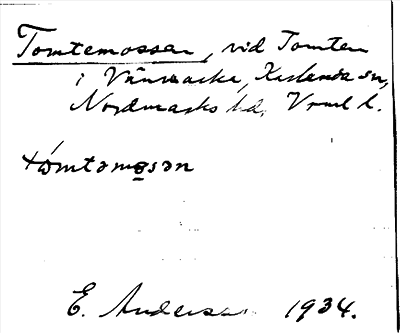 Tomtemossar, vid Tomten
i Vännacka, Karlanda sn,
Nordmarks hd. Vrml l.
tómtəmo̲sən
E. Anderss 1934.